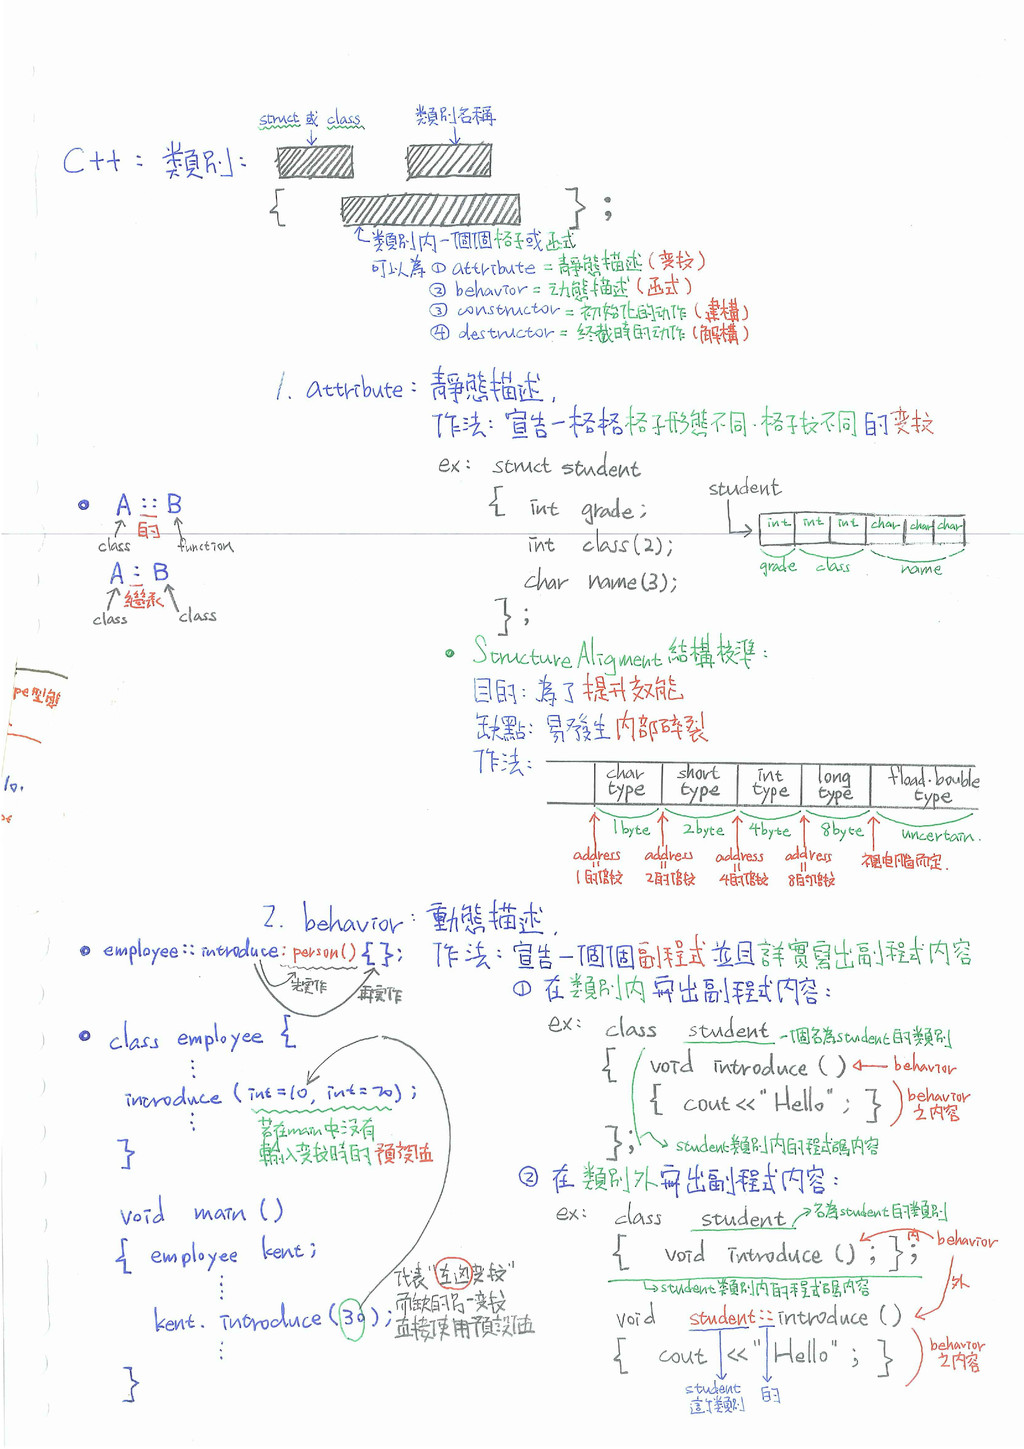 struct 或 class
類別名稱
C++ : 類別:
{ } ;
類別內一個個格子或函式
可以為 ① attribute = 靜態描述 (变数)
② behavior = 动態描述 (函式)
③ constructor = 初始化的动作 (建構)
④ destructor = 終截時的动作 (解構)
1. attribute: 靜態描述,
作法: 宣告一格格格子形態不同.格子数不同的变数
ex: struct student
{ int grade;
int class(2);
char name(3);
};
student
int int int char char char
grade class name
A :: B
的
class function
A : B
繼承
class class
pe型態
10.
Structure Aligment 結構校準:
目的: 為了提升效能
缺點: 易發生內部碎裂
作法:
char type short type int type long type float.bouble type
1byte 2byte 4byte 8byte uncertain.
address address address address 視电腦而定.
= = = =
1的倍数 2的倍数 4的倍数 8的倍数
2. behavior: 動態描述,
作法: 宣告一個個副程式並且詳實寫出副程式內容
employee::introduce: person() { };
先实作 再实作
① 在類別內寫出副程式內容:
ex: class student 一個名為student的類別
{ void introduce () ← behavior
{ cout << "Hello" ; } behavior之內容
};
student類別內的程式碼內容
class employee {
⋮
introduce (int=10, int=20);
若在main中沒有
輸入变数時的預設值
⋮
}
void main ()
{ employee kent;
⋮
kent. introduce (30);
⋮
}
代表"左边变数"
而缺的另一变数
直接使用預設值
② 在類別外寫出副程式內容:
ex: class student 名為student的類別
{ void introduce () ; }; 內 behavior
student類別內的程式碼內容
外
void student::introduce ()
{ cout << "Hello" ; } behavior之內容
student 的
這個類別